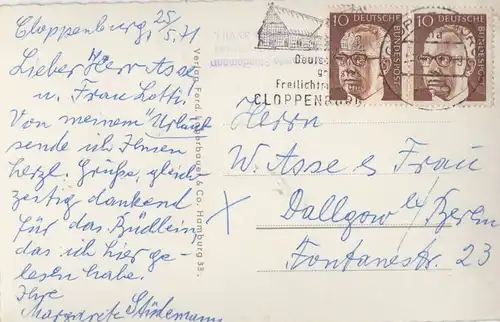 Cloppenburg, 25/5.71
Lieber Herr Asse
u. Frau Lotti.
Von meinem Urlaub
sende ich Ihnen
herzl. Grüße, gleich-
zeitig dankend
für das Büdlein,
das ich hier ge-
lesen habe.
Ihre
Margarete Stüdemann
Verlag Ferd. & Co., Hamburg 33
10 DEUTSCHE BUNDESPOST
10 DEUTSCHE BUNDESPOST
Deutsch
Freilicht
CLOPPENBURG
Herrn
W. Asse & Frau
Dallgow b/ Berlin
Fontanestr. 23